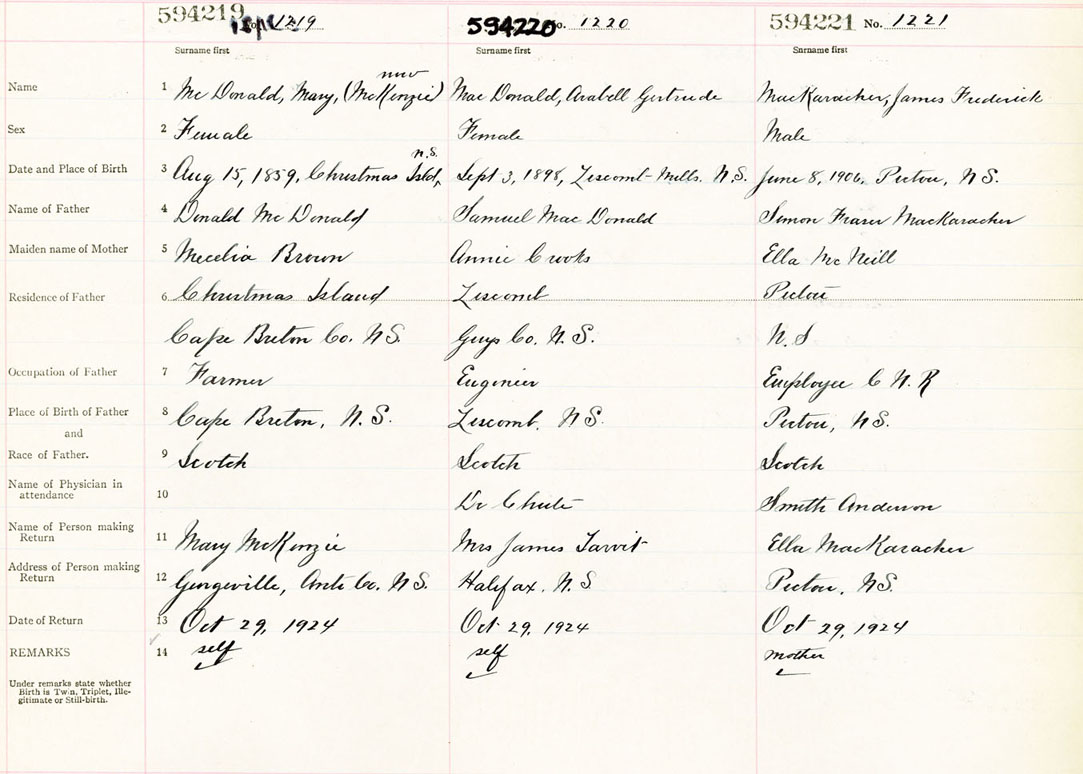 594219 No. 1219 594220 No. 1220 594221 No. 1221
Surname first Surname first Surname first
now
Name 1 Mc Donald, Mary, (McKenzie) Mac Donald, Arabell Gertrude MacKaracher, James Frederick
Sex 2 Female Female Male
N.S.
Date and Place of Birth 3 Aug 15, 1859, Christmas Isld, Sept 3, 1898, Liscomb Mills, N.S. June 8, 1906, Pictou, N.S.
Name of Father 4 Donald Mc Donald Samuel Mac Donald Simon Fraser MacKaracher
Maiden name of Mother 5 Mecelia Brown Annie Crooks Ella Mc Neill
Residence of Father 6 Christmas Island Liscomb Pictou
Cape Breton Co. N.S. Guys Co. N.S. N.S
Occupation of Father 7 Farmer Engineer Employee C N. R
Place of Birth of Father 8 Cape Breton, N.S. Liscomb, N S. Pictou, N S.
and
Race of Father. 9 Scotch Scotch Scotch
Name of Physician in
attendance 10 Dr Chute Smith Anderson
Name of Person making
Return 11 Mary McKenzie Mrs James Ella MacKaracher
Address of Person making
Return 12 Georgeville, Anti Co. N.S. Halifax, N.S Pictou, N.S.
Date of Return 13 Oct 29, 1924 Oct 29, 1924 Oct 29, 1924
REMARKS 14 self self mother
Under remarks state whether
Birth is Twin, Triplet, Ille-
gitimate or Still-birth.